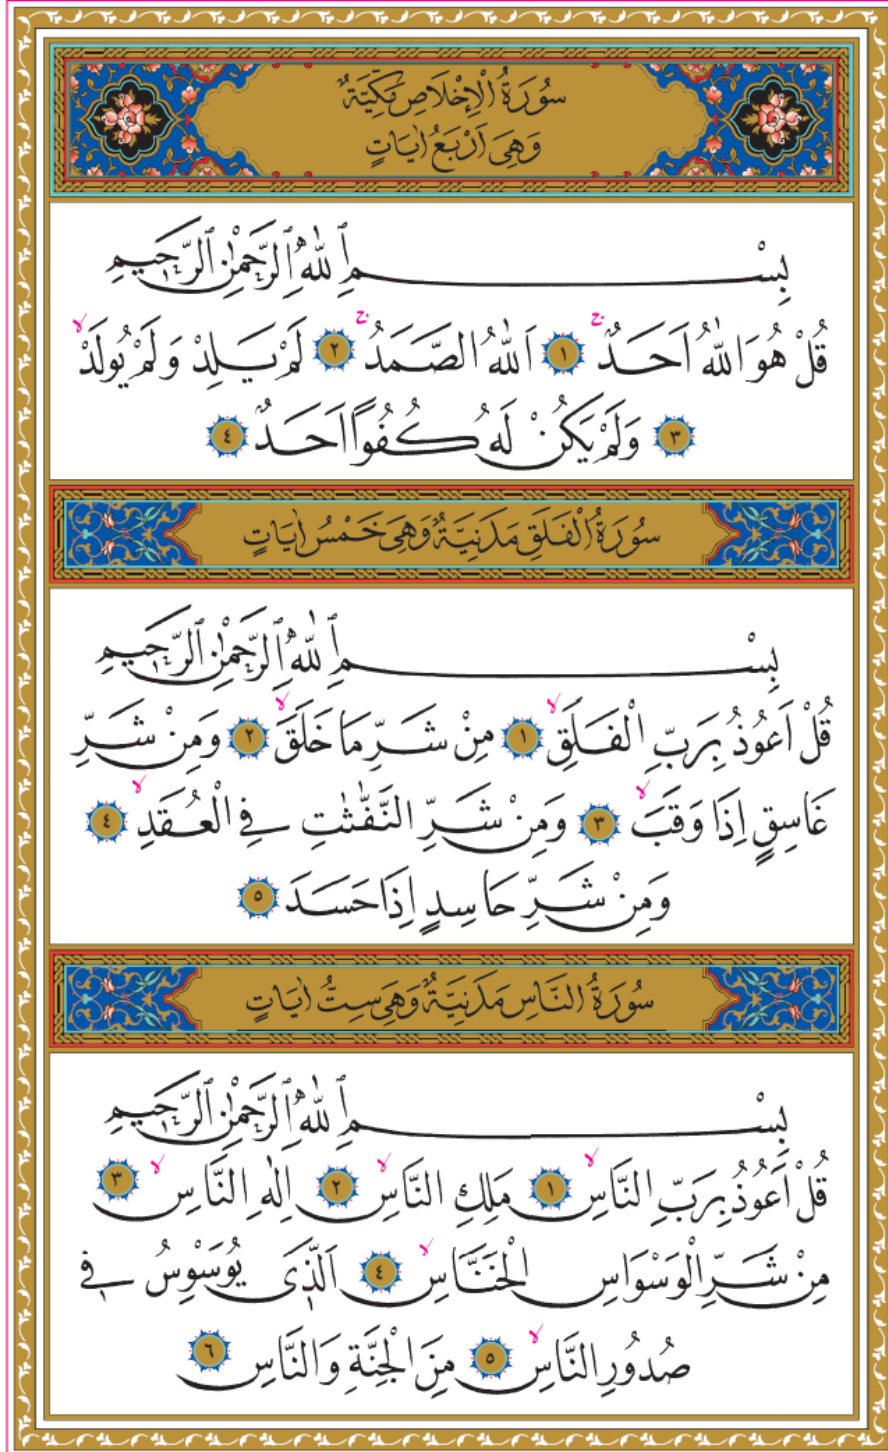 سُورَةُ الْاِخْلَاصِ مَكِّيَّةٌ
وَهِىَ اَرْبَعُ اٰيَاتٍ
بِسْمِ اللّٰهِ الرَّحْمٰنِ الرَّحِيمِ
قُلْ هُوَ اللّٰهُ اَحَدٌۚ ١ اَللّٰهُ الصَّمَدُۚ ٢ لَمْ يَلِدْ وَلَمْ يُولَدْۙ
٣ وَلَمْ يَكُنْ لَهُ كُفُوًا اَحَدٌ ٤
سُورَةُ الْفَلَقِ مَدَنِيَّةٌ وَهِىَ خَمْسُ اٰيَاتٍ
بِسْمِ اللّٰهِ الرَّحْمٰنِ الرَّحِيمِ
قُلْ اَعُوذُ بِرَبِّ الْفَلَقِۙ ١ مِنْ شَرِّ مَا خَلَقَۙ ٢ وَمِنْ شَرِّ
غَاسِقٍ اِذَا وَقَبَۙ ٣ وَمِنْ شَرِّ النَّفَّاثَاتِ فِى الْعُقَدِۙ ٤
وَمِنْ شَرِّ حَاسِدٍ اِذَا حَسَدَ ٥
سُورَةُ النَّاسِ مَدَنِيَّةٌ وَهِىَ سِتُّ اٰيَاتٍ
بِسْمِ اللّٰهِ الرَّحْمٰنِ الرَّحِيمِ
قُلْ اَعُوذُ بِرَبِّ النَّاسِۙ ١ مَلِكِ النَّاسِۙ ٢ اِلٰهِ النَّاسِۙ ٣
مِنْ شَرِّ الْوَسْوَاسِ الْخَنَّاسِۙ ٤ اَلَّذِى يُوَسْوِسُ فِى
صُدُورِ النَّاسِۙ ٥ مِنَ الْجِنَّةِ وَالنَّاسِ ٦